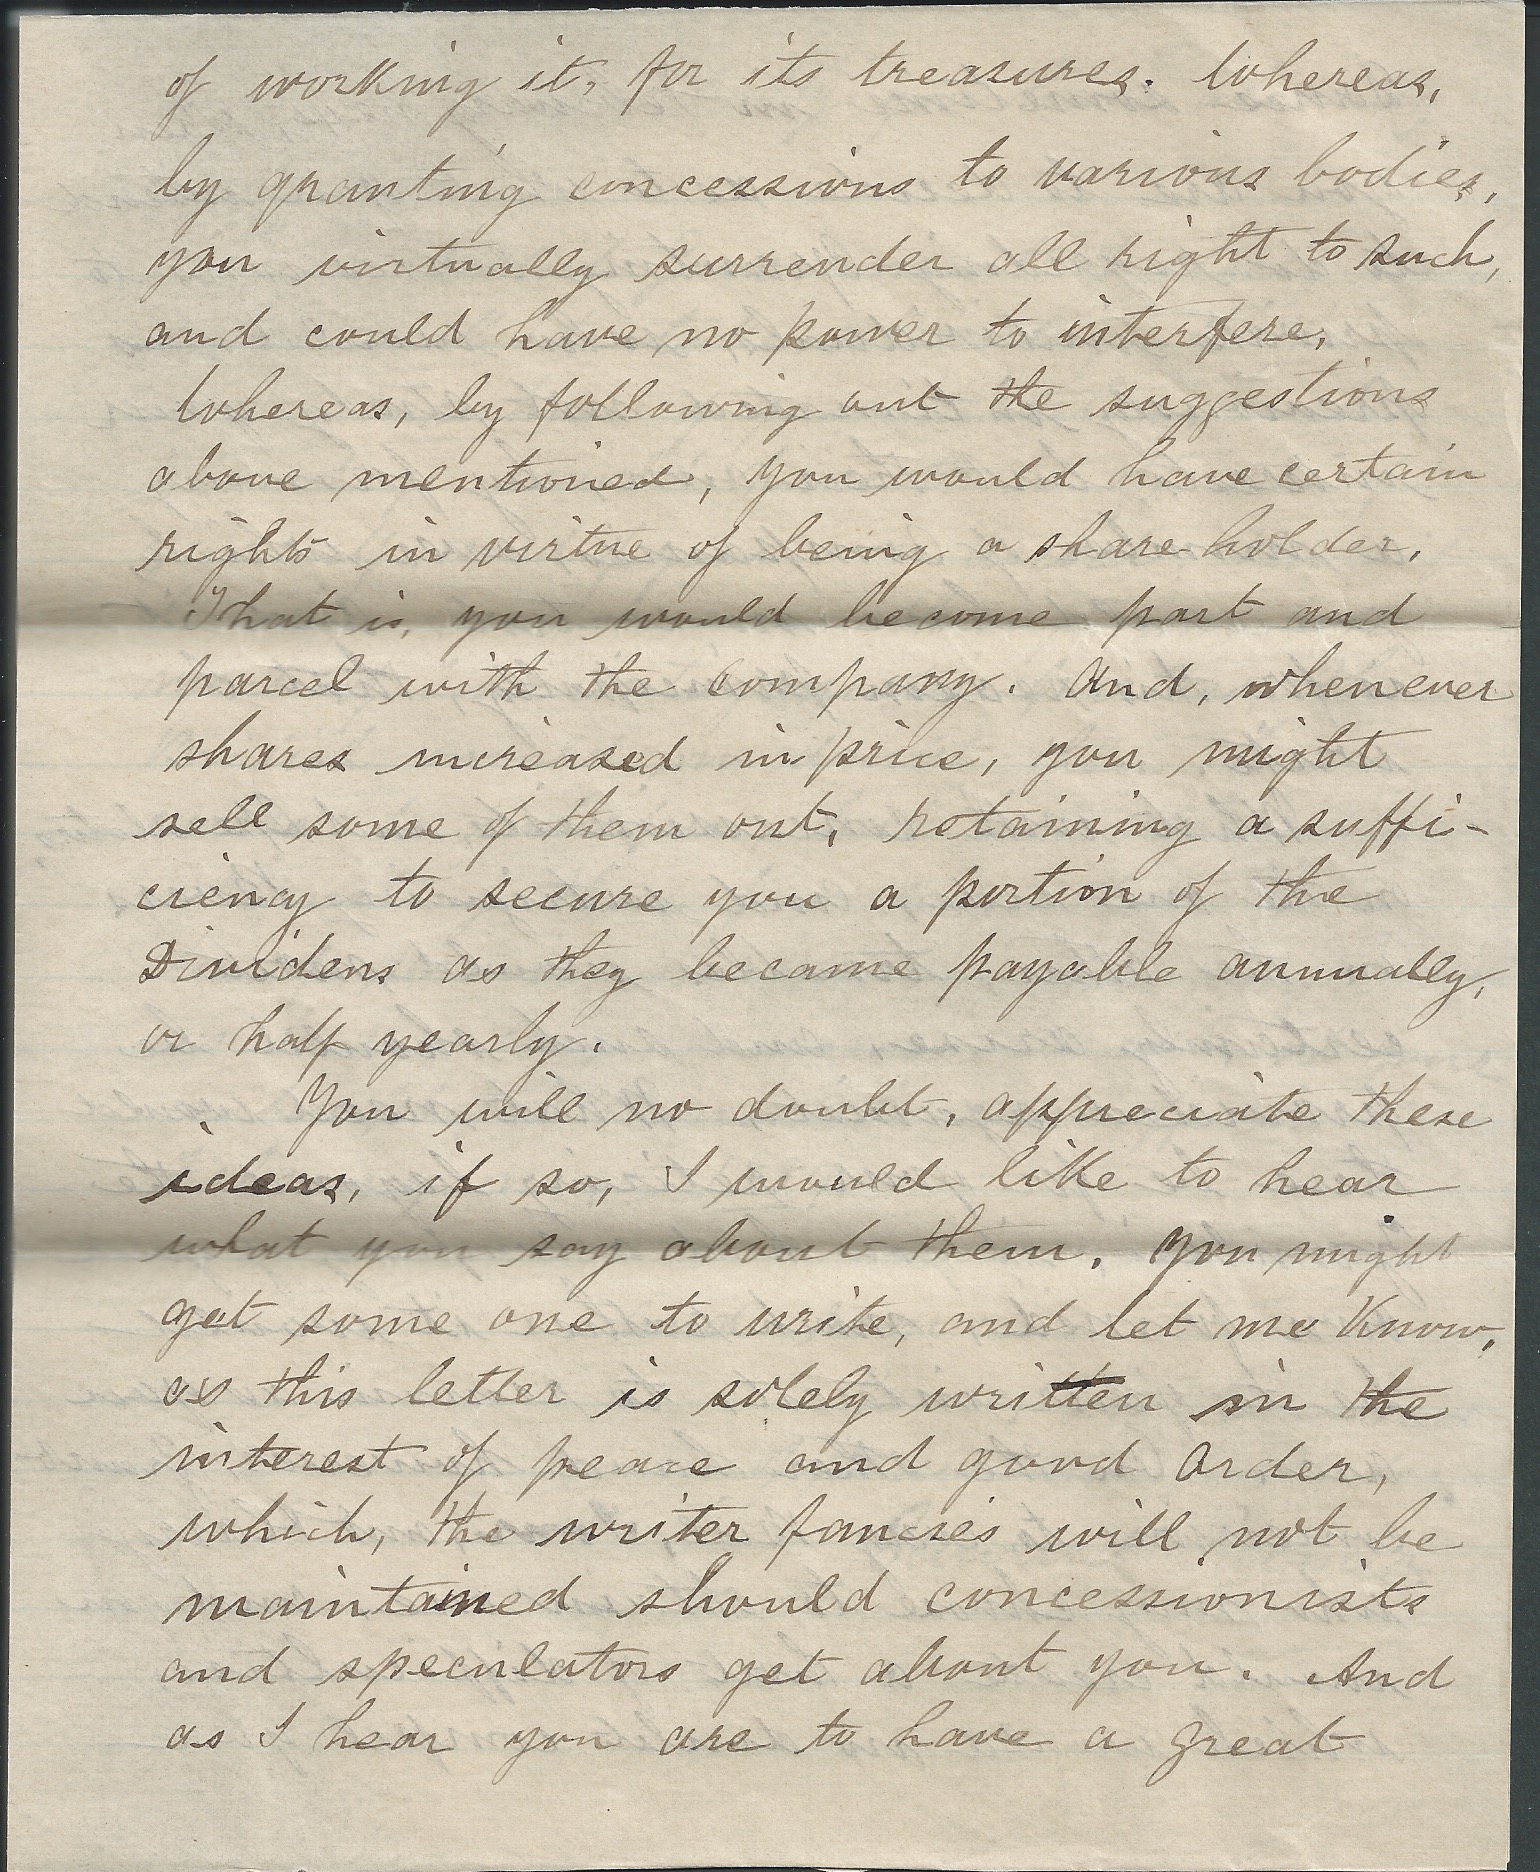 of working it, for its treasures. Whereas,
by granting concessions to various bodies,
you virtually surrender all right to such,
and could have no power to interfere,
Whereas, by following out the suggestions
above mentioned, you would have certain
rights in virtue of being a share holder.
That is, you would become part and
parcel with the company. And, whenever
shares increased in price, you might
sell some of them out, retaining a suffi-
ciency to secure you a portion of the
Dividens as they became payable annually,
or half yearly.
You will no doubt, appreciate these
ideas, if so, I would like to hear
what you say about them. You might
get some one to write, and let me know,
as this letter is solely written in the
interest of peace and good order,
which, the writer fancies will not be
maintained should concessionists
and speculators get about you. And
as I hear you are to have a great